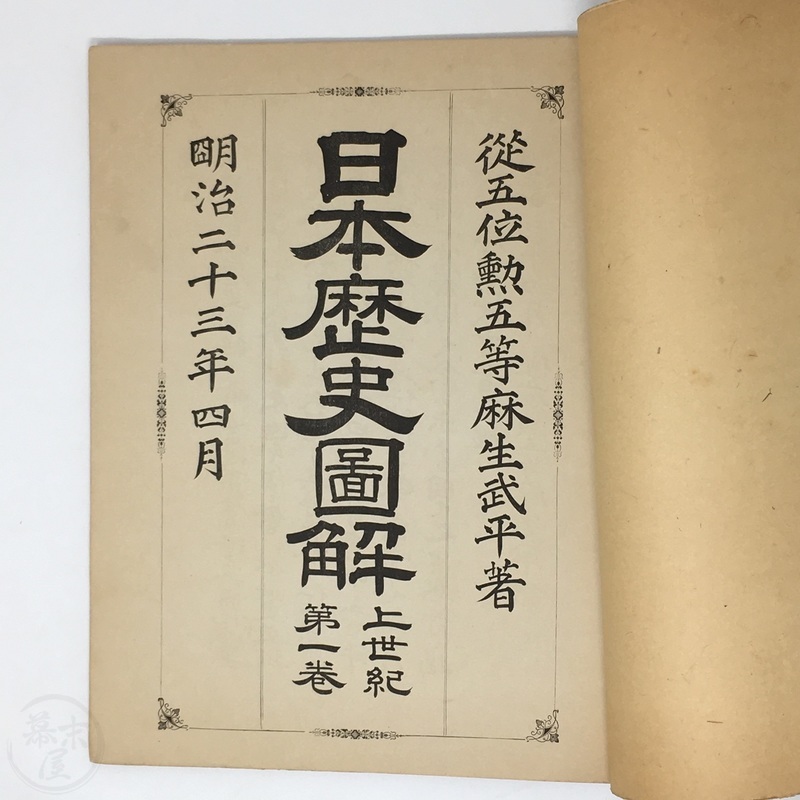 從五位勳五等麻生武平著
日本歷史圖解
上世紀
第一卷
明治二十三年四月
幕末屋